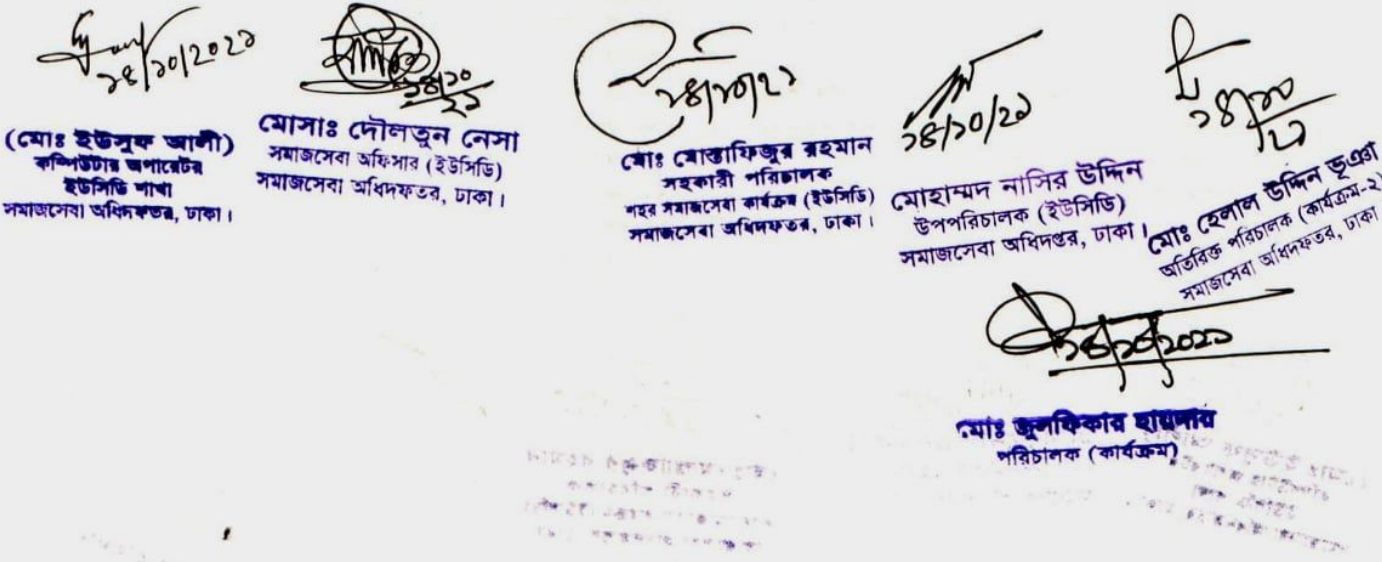 ২৪/১০/২০২১
(মোঃ ইউসুফ আলী)
কম্পিউটার অপারেটর
ইউসিডি শাখা
সমাজসেবা অধিদফতর, ঢাকা।
২৪/১০
২১
মোসাঃ দৌলতুন নেসা
সমাজসেবা অফিসার (ইউসিডি)
সমাজসেবা অধিদফতর, ঢাকা।
২৪/১০/২১
মোঃ মোস্তাফিজুর রহমান
সহকারী পরিচালক
শহর সমাজসেবা কার্যক্রম (ইউসিডি)
সমাজসেবা অধিদফতর, ঢাকা।
২৪/১০/২১
মোহাম্মদ নাসির উদ্দিন
উপপরিচালক (ইউসিডি)
সমাজসেবা অধিদপ্তর, ঢাকা।
২৪/১০
২১
মোঃ হেলাল উদ্দিন ভূঞা
অতিরিক্ত পরিচালক (কার্যক্রম-২)
সমাজসেবা অধিদফতর, ঢাকা
২৪/১০/২০২১
মোঃ জুলফিকার হায়দার
পরিচালক (কার্যক্রম)